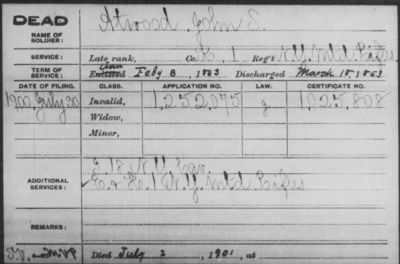 DEAD
NAME OF SOLDIER: Atwood, John E.
SERVICE: Late rank, Co. K, 1 Reg't N.Y. Mtd Rifles
TERM OF SERVICE: Enlisted Feby 8, 1863 Discharged March 18, 1863
DATE OF FILING. CLASS. APPLICATION NO. LAW. CERTIFICATE NO.
1900 July 30 Invalid, 1,252,075 g 1,025,808
Widow,
Minor,
ADDITIONAL SERVICES: G. 18 N.Y. Cav
1 N.Y. Mtd Rifles
REMARKS:
Died July 2, 1901, at